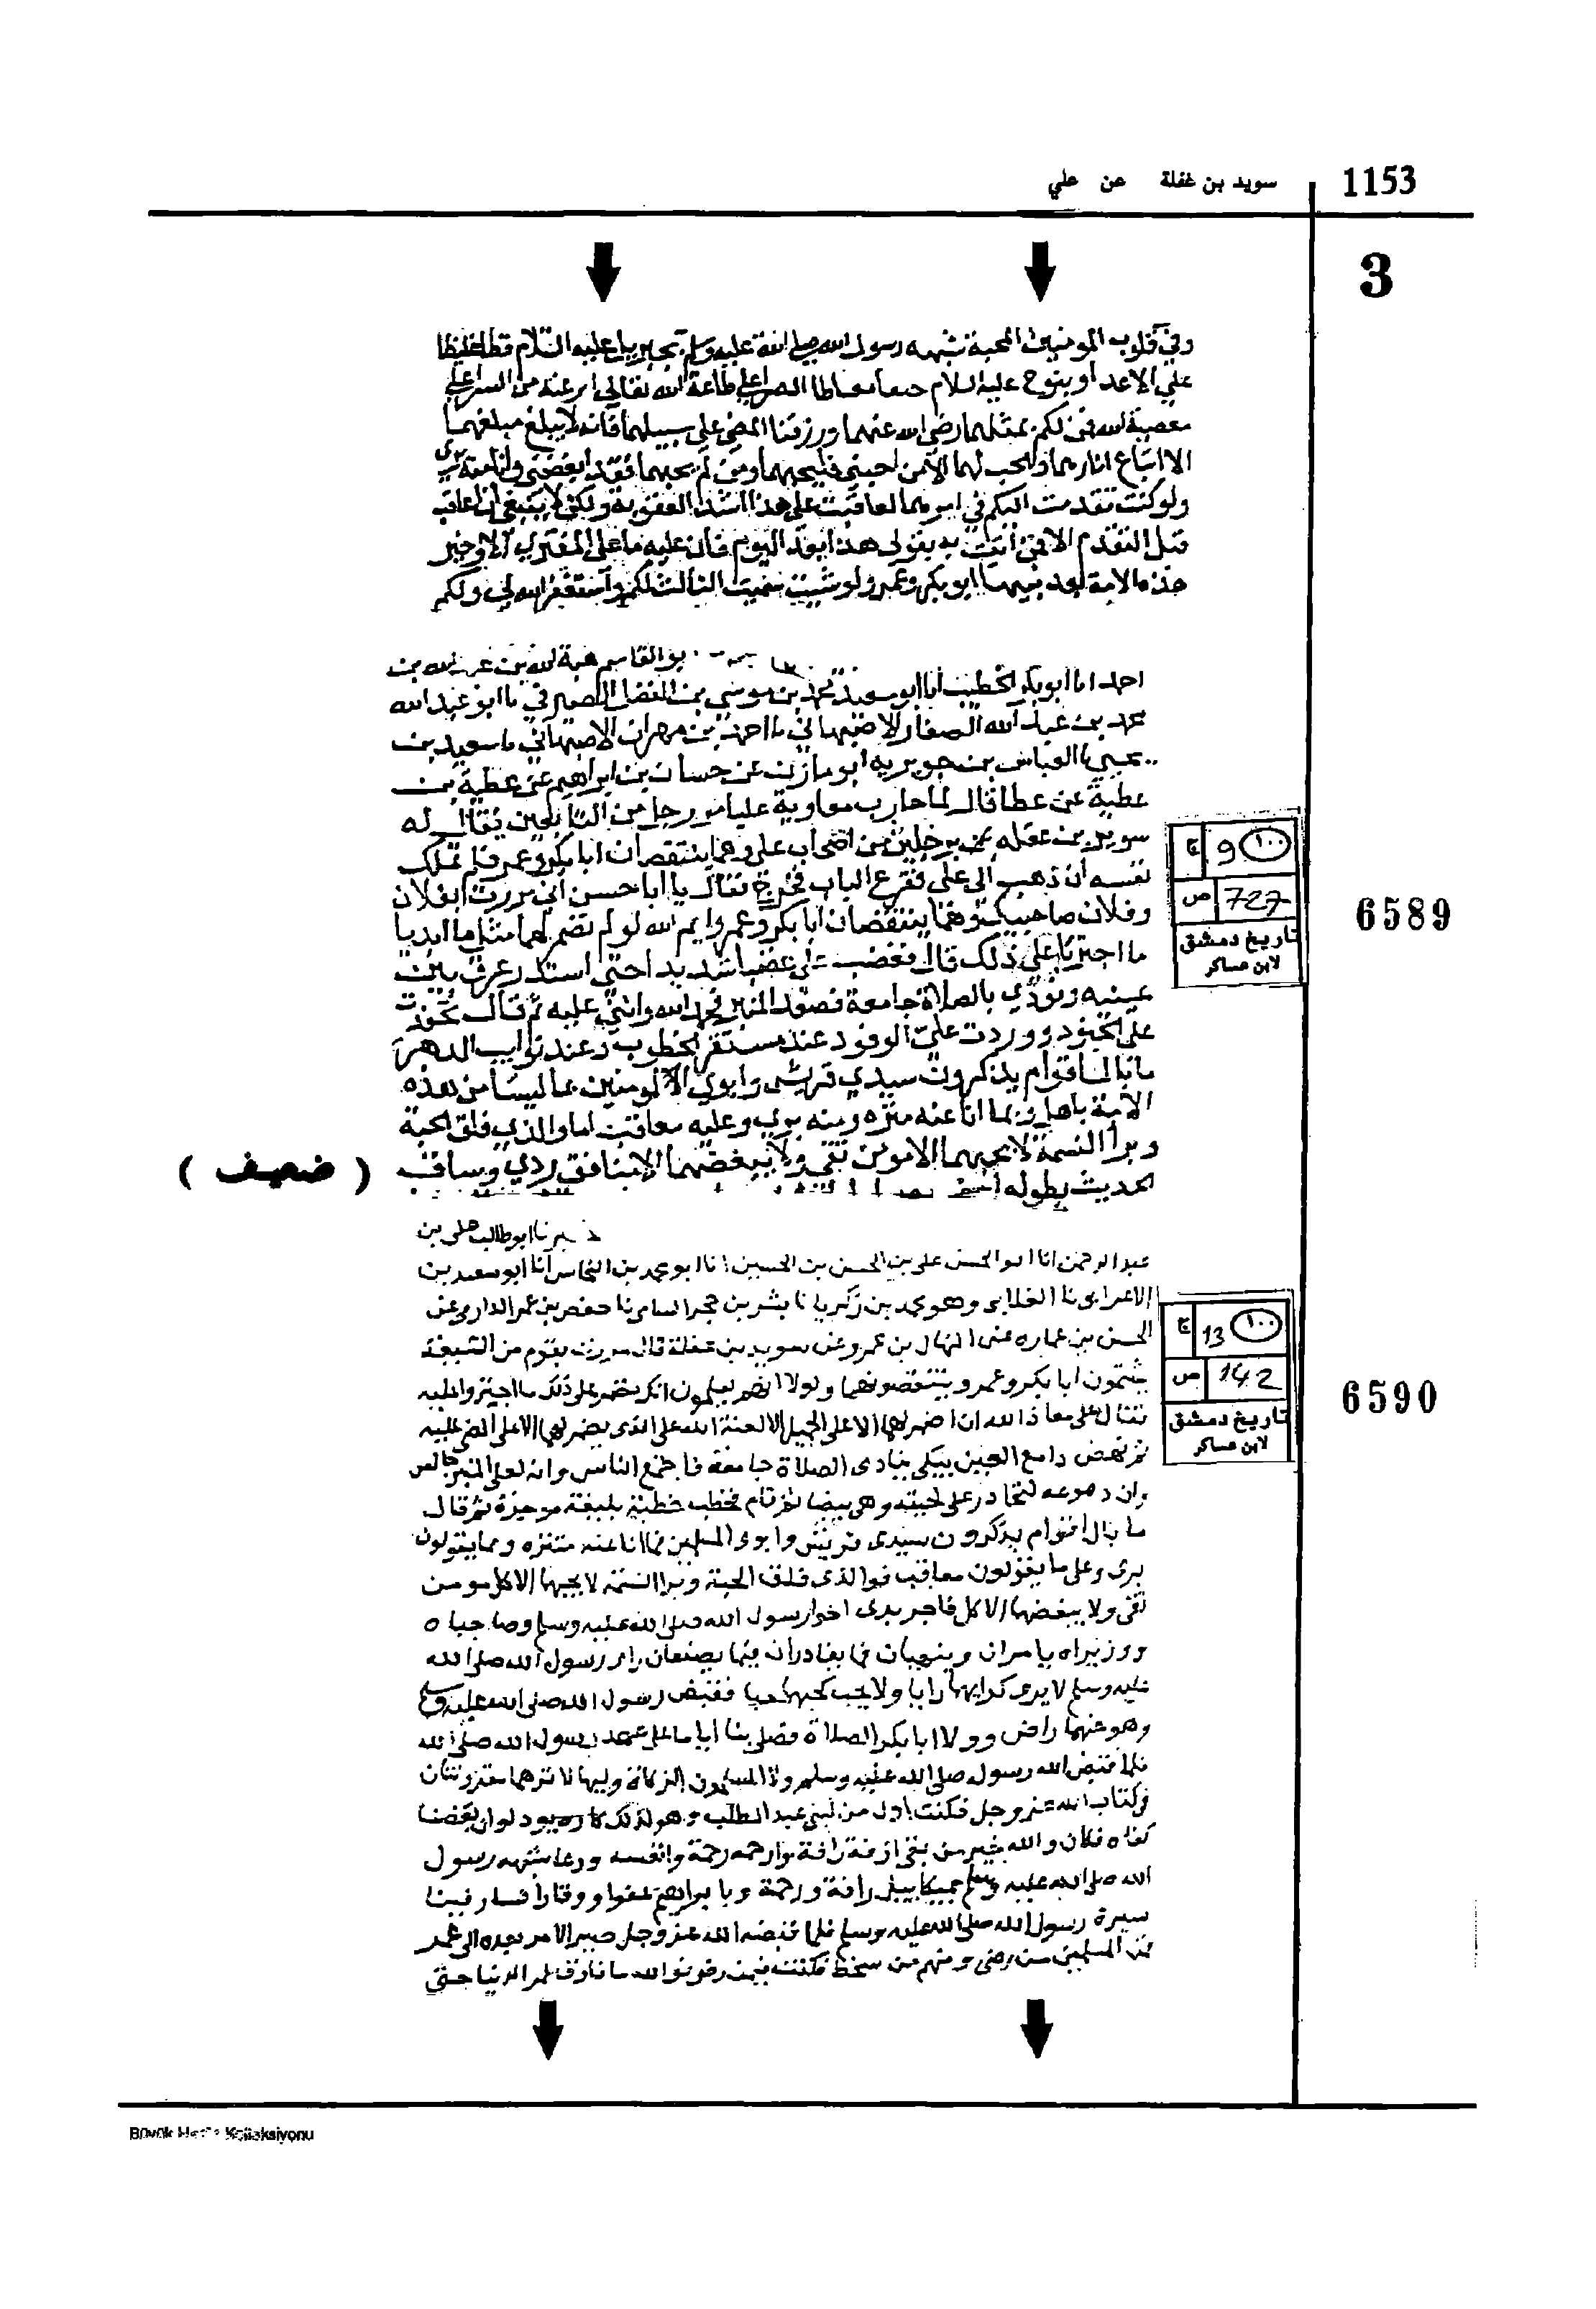 1153
سويد بن غفلة عن علي
3
وفي قلوب المومنين المحبة شبهه رسول الله صلى الله عليه وسلم بجبريل عليه السلام فظا غليظا
علي الاعدا وبنوح عليه السلام الضرا علي طاعة الله تعالي من السرا علي
معصية الله فمن لكم بمثلهما رضي الله عنهما ورزقنا المضي علي سبيلهما فانه لا يبلغ مبلغهما
الا اتباع اثارهما والحب لهما الا من احبني فليحبهما ومن لم يحبهما فقد ابغضني وانا منه بري
ولو كنت تقدمت اليكم في امرهما لعاقبت علي هذا اشد العقوبة ولكن لا ينبغي ان اعاقب
قبل التقدم الا فمن اتيت به يقول هذا بعد اليوم فان عليه ما علي المفتري الا وخير
هذه الامة بعد نبيها ابو بكر وعمر ولو شيت سميت الثالث لكم واستغفر الله لي ولكم
بو القاسم هبة الله بن عبد الله بن
احمد انا ابو بكر الخطيب انا ابو سعيد محمد بن موسي بن الفضل الصيرفي نا ابو عبد الله
محمد بن عبد الله الصفار الاصبهاني نا احمد بن مهران الاصبهاني نا سعيد بن
يحيي نا العباس بن جويريه ابو مازن عن حسان بن ابراهيم عن عطية بن
عطية عن عطا قال لما حارب معاوية عليا مر رجل من التابعين يقال له
سويد بن غفله برجلين من اصحاب علي وهما ينتقصان ابا بكر وعمر فلم يملك
نفسه ان ذهب الي علي فقرع الباب فخرج فقال يا ابا حسن اني مررت بفلان
وفلان صاحبيك وهما ينتقصان ابا بكر وعمر وايم الله لو لم تضمر لهما مثل ما ابديا
ما اجتريا علي ذلك قال فغضب علي غضبا شديدا حتي استدر عرق بين
عينيه ونودي بالصلاة جامعة فصعد المنبر فحمد الله واثني عليه ثم قال
علي الجنود ووردت علي الوفود عند مستقر الخطوب وعند نوايب الدهر
ما بال اقوام يذكرون سيدي قريش وابوي المومنين بما ليسا من هذه
الامة باهل وبما انا عنه منزه ومنه بري وعليه معاقب اما والذي فلق الحبة
وبرا النسمة لا يحبهما الا مومن تقي ولا يبغضهما الا منافق ردي وساق
( ضعيف )
الحديث بطوله
100 9 ج
727 ص
تاريخ دمشق
لابن عساكر
6589
نا ابو طالب علي بن
عبد الرحمن انا ابو الحسن علي بن الحسن بن الحسين انا ابو محمد بن النحاس انا ابو سعيد بن
الاعرابي نا الغلابي وهو محمد بن زكريا نا بشر بن حجر السامي نا حفص بن عمر الدارمي عن
الحسن بن عماره عن المنهال بن عمرو عن سويد بن غفلة قال مررت بقوم من الشيعة
يشتمون ابا بكر وعمر وينتقصونهما ولولا انهم يعلمون انك تضمر علي ذلك ما اجتروا عليه
فقال علي معاذ الله ان اضمر لهما الا علي الجميل الا لعنة الله علي الذي يضمر لهما الا علي
ثم نهض دامع العين يبكي ينادي الصلاة جامعة فاجتمع الناس وانه لعلي المنبر جالس
وان دموعه لتحادر علي لحيته وهي بيضا ثم قام فخطب خطبة بليغة موجزة ثم قال
ما بال اقوام يذكرون سيدي قريش وابوي المسلمين بما انا عنه متنزه ومما يقولون
بري وعلي ما يقولون معاقب فوالذي فلق الحبة وبرا النسمة لا يحبهما الا كل مومن
تقي ولا يبغضهما الا كل فاجر ردي اخوا رسول الله صلي الله عليه وسلم وصاحباه
ووزيراه يامران وينهيان فما يغادران فيما يصنعان راي رسول الله صلي الله
عليه وسلم لا يري كرايهما رايا ولا يحب كحبهما حبا فقبض رسول الله صلي الله عليه وسلم
وهو عنهما راض وولا ابا بكر الصلاة فصلي بنا اياما علي عهد رسول الله صلي الله
فلما قبض الله رسوله صلي الله عليه وسلم ولاه المسلمون الزكاة وليها لانهما مقرونتان
في كتاب الله عز وجل فكنت اول من لبني عبد المطلب وهو لذلك كاره يود لو ان بعضنا
كفاه فكان والله خير من بقي ارافه رافة وارحمه رحمة وانفسه ورعا شبهه رسول
الله صلي الله عليه وسلم بميكاييل رافة ورحمة وبابراهيم عفوا ووقارا فسار فينا
سيرة رسول الله صلي الله عليه وسلم فلما قبضه الله عز وجل صير الامر بعده الي عمر
فمن المسلمين من رضي ومنهم من سخط فكنت فيمن رضي فوالله ما فارق عمر الدنيا حتي
100 13 ج
142 ص
تاريخ دمشق
لابن عساكر
6590
Büyük Hadis Kolleksiyonu